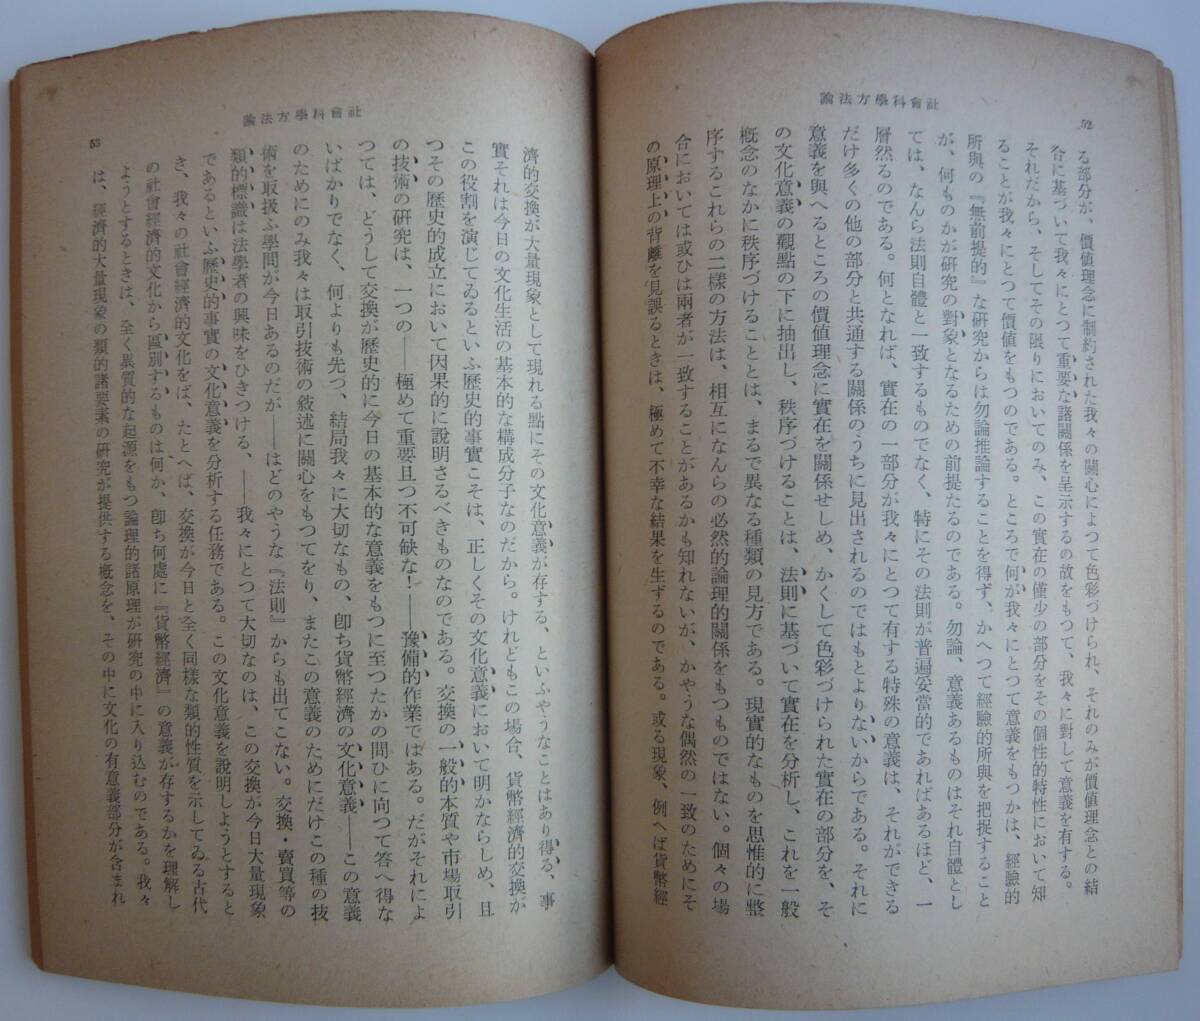 社會科學方法論
52
る部分が、價値理念に制約された我々の關心によつて色彩づけられ、それのみが價値理念との結
合に基づいて我々にとつて重要な諸關係を呈示するの故をもつて、我々に對して意義を有する。
それだから、そしてその限りにおいてのみ、この實在の僅少の部分をその個性的特性において知
ることが我々にとつて價値をもつのである。ところで何が我々にとつて意義をもつかは、經驗的
所與の『無前提的』な研究からは勿論推論することを得ず、かへつて經驗的所與を把捉すること
が、何ものかが研究の對象となるための前提たるのである。勿論、意義あるものはそれ自體とし
ては、なんら法則自體と一致するものでなく、特にその法則が普遍妥當的であればあるほど、一
層然るのである。何となれば、實在の一部分が我々にとつて有する特殊の意義は、それができる
だけ多くの他の部分と共通する關係のうちに見出されるのではもとよりないからである。それに
意義を與へるところの價値理念に實在を關係せしめ、かくして色彩づけられた實在の部分を、そ
の文化意義の觀點の下に抽出し、秩序づけることは、法則に基づいて實在を分析し、これを一般
概念のなかに秩序づけることとは、まるで異なる種類の見方である。現實的なものを思惟的に整
序するこれらの二樣の方法は、相互になんらの必然的論理的關係をもつものではない。個々の場
合においては或ひは兩者が一致することがあるかも知れないが、かやうな偶然の一致のためにそ
の原理上の背離を見誤るときは、極めて不幸な結果を生ずるのである。或る現象、例へば貨幣經
社會科學方法論
53
濟的交換が大量現象として現れる點にその文化意義が存する、といふやうなことはあり得る、事
實それは今日の文化生活の基本的な構成分子なのだから。けれどもこの場合、貨幣經濟的交換が
この役割を演じてゐるといふ歷史的事實こそは、正しくその文化意義において明かならしめ、且
つその歷史的成立において因果的に說明さるべきものなのである。交換の一般的本質や市場取引
の技術の研究は、一つの――極めて重要且つ不可缺な！――豫備的作業ではある。だがそれによ
つては、どうして交換が歷史的に今日の基本的な意義をもつに至つたかの問ひに向つて答へ得な
いばかりでなく、何よりも先づ、結局我々に大切なもの、卽ち貨幣經濟の文化意義――この意義
のためにのみ我々は取引技術の敍述に關心をもつてをり、またこの意義のためにだけこの種の技
術を取扱ふ學問が今日あるのだが――はどのやうな『法則』からも出てこない。交換・賣買等の
類的標識は法學者の興味をひきつける、――我々にとつて大切なのは、この交換が今日大量現象
であるといふ歷史的事實の文化意義を分析する任務である。この文化意義を說明しようとすると
き、我々の社會經濟的文化をば、たとへば、交換が今日と全く同樣な類的性質を示してゐる古代
の社會經濟的文化から區別するものは何か、卽ち何處に『貨幣經濟』の意義が存するかを理解し
ようとするときは、全く異質的な起源をもつ論理的諸原理が研究の中に入り込むのである。我々
は、經濟的大量現象の類的諸要素の研究が提供する概念を、その中に文化の有意義部分が含まれ